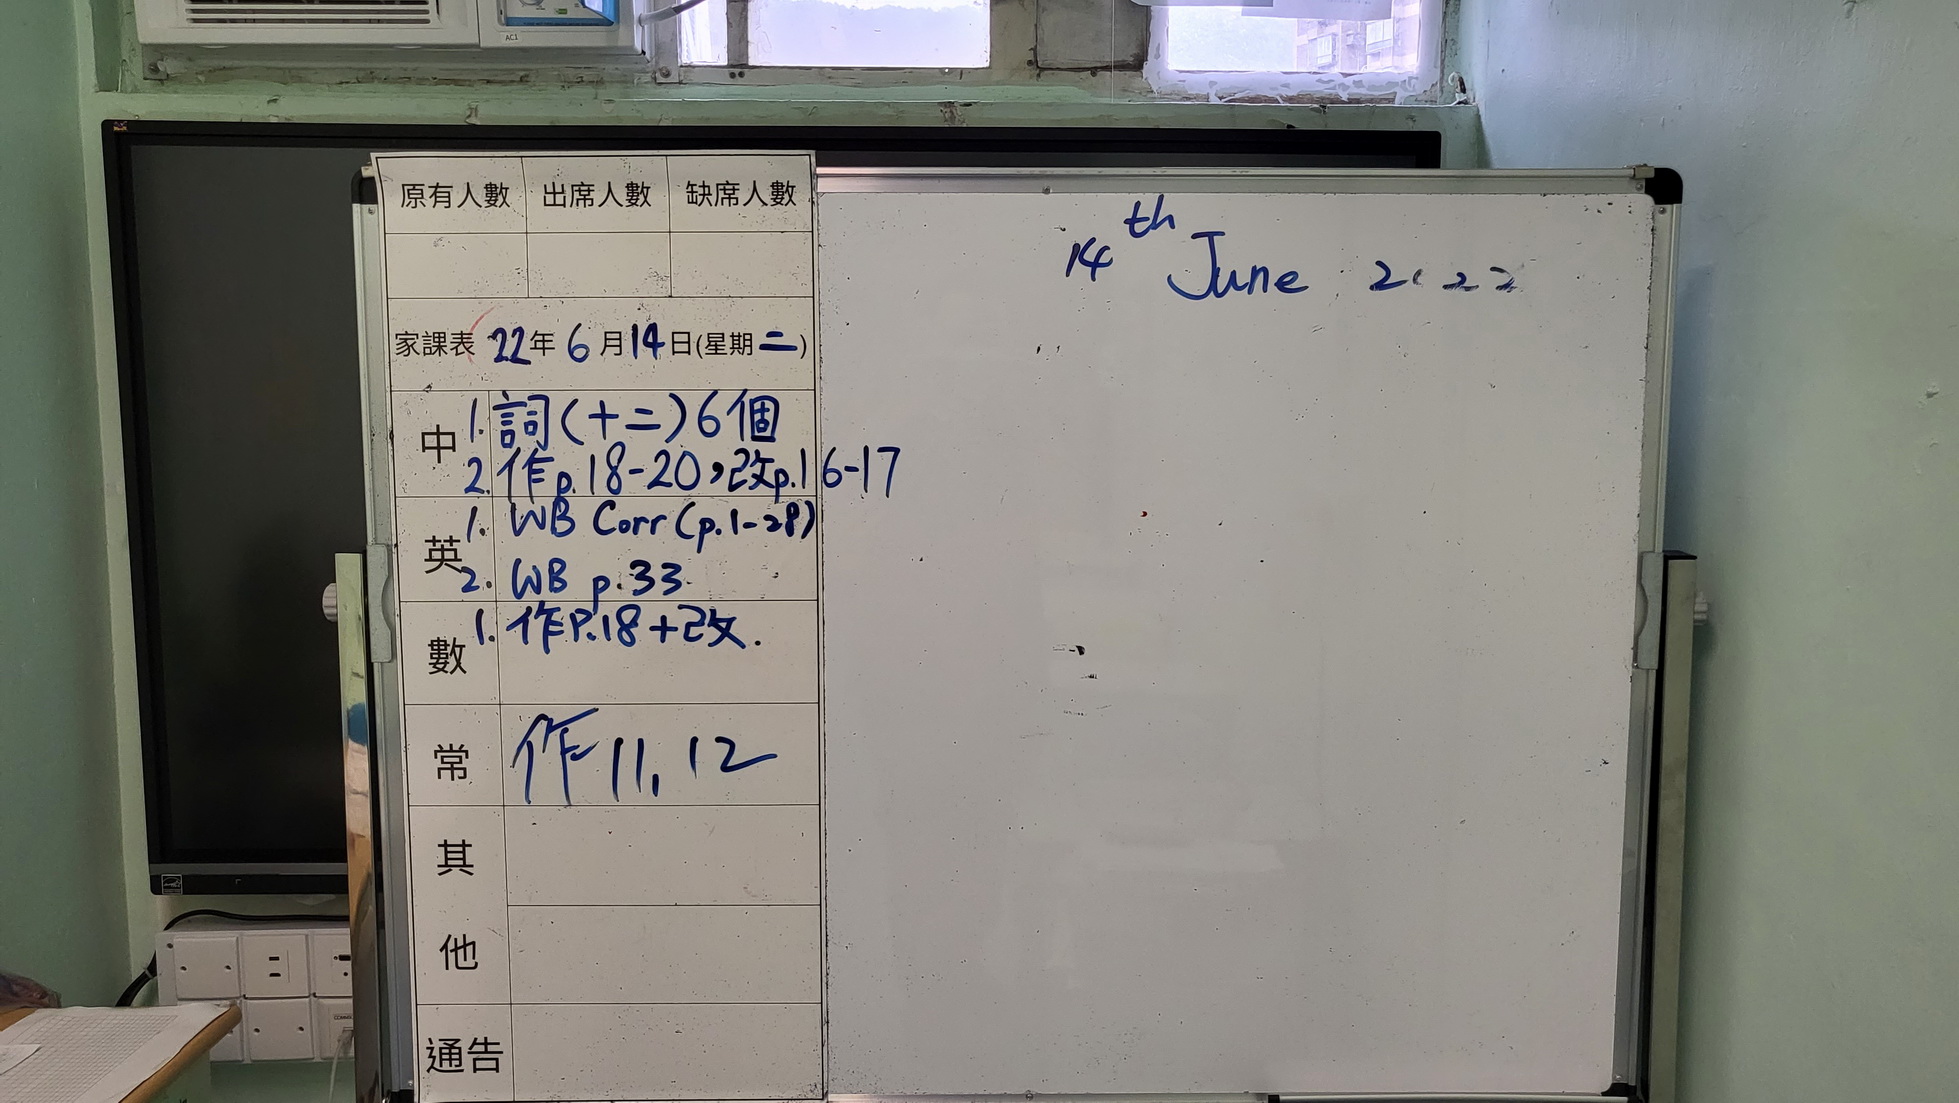 AC1
原有人數 出席人數 缺席人數
家課表 22年6月14日(星期二)
中 1. 詞(十二)6個
2. 作p.18-20,改p.16-17
英 1. WB Corr (p.1-28)
2. WB p.33
數 1. 作P.18+改.
常 作11, 12
其
他
通告
14th June 2022